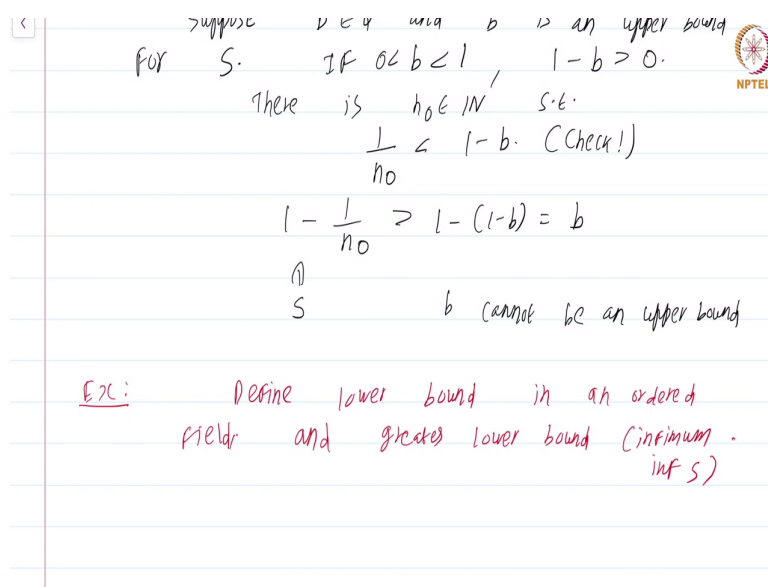 Suppose b ∈ Q and b is an upper bound
for S. If 0 < b < 1, 1 - b > 0.
There is n₀ ∈ ℕ s.t.
1/n₀ < 1 - b. (Check!)
1 - 1/n₀ > 1 - (1-b) = b
∩
S b cannot be an upper bound
Ex: Define lower bound in an ordered
field and greatest lower bound (infimum.
inf S)
NPTEL